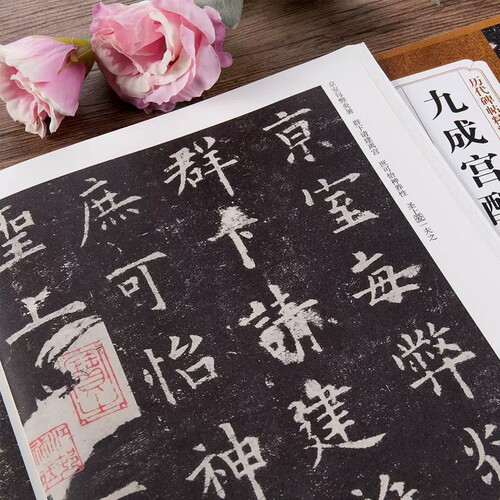 京室每弊炎
群下請建
庶可怡神
聖上
京室每弊炎暑 群下请建离宫 庶可怡神养性 圣上爱一夫之
历代碑帖
九成宫